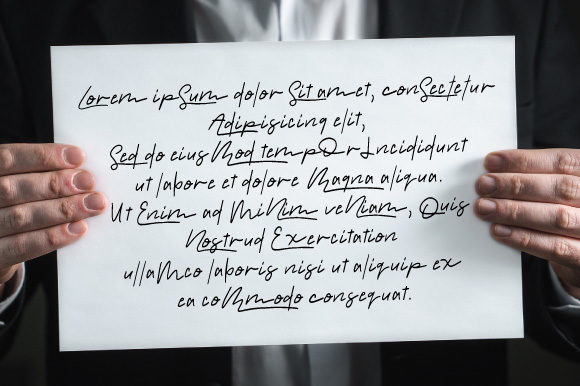 Lorem ipSum dolor Sit amet, conSectetur
Adipisicing elit,
Sed do eius Mod tempOr Incididunt
ut labore et dolore Magna aliqua.
Ut Enim ad MiNim veNiam, Quis
Nostrud Exercitation
ullaMco laboris nisi ut aliquip ex
ea coMmodo consequat.